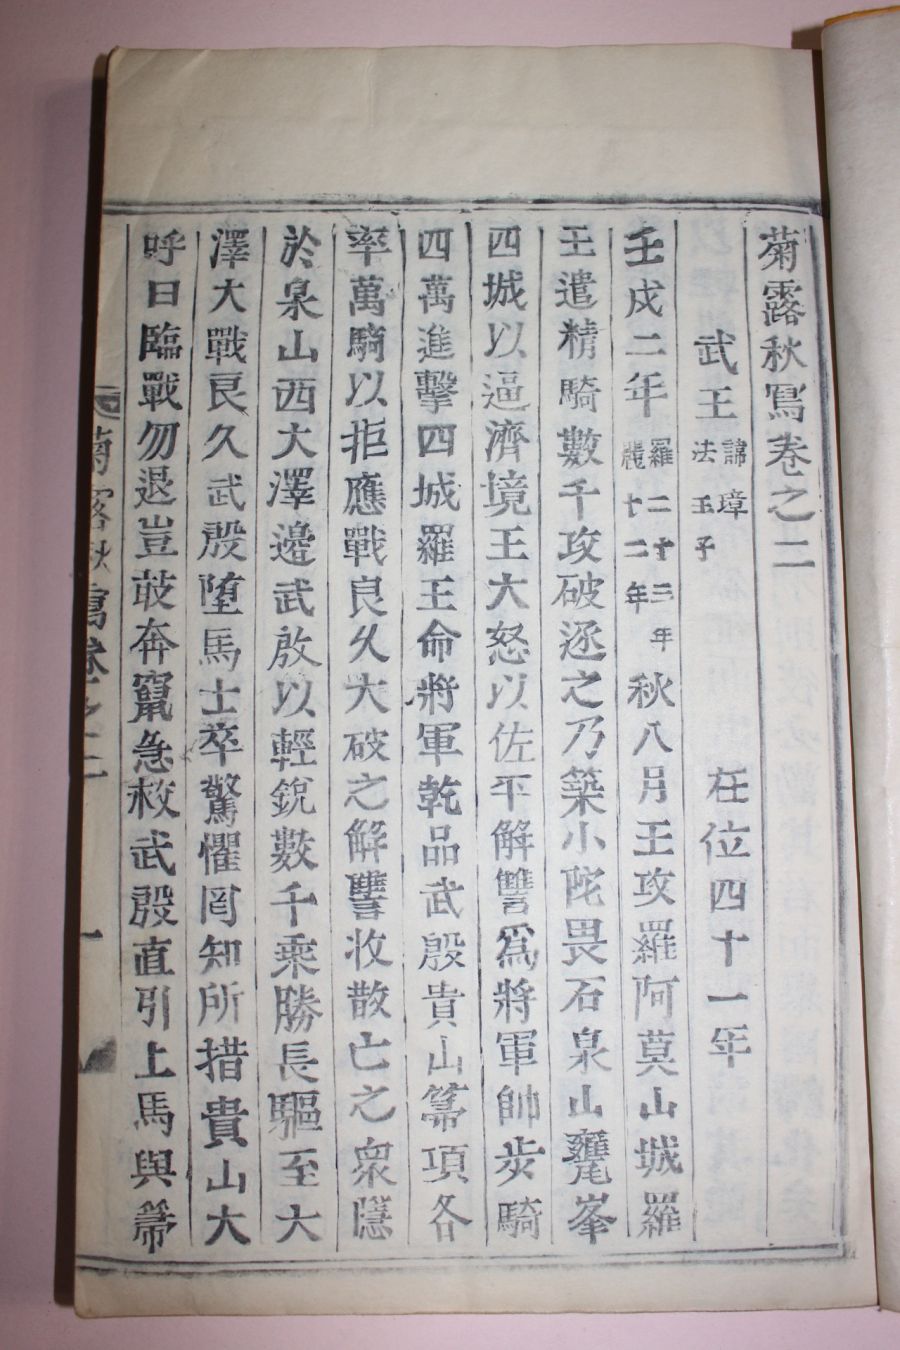 菊露秋寫卷之二
武王 諱璋 法王子 在位四十一年
壬戌二年 羅二十三年 麗十二年 秋八月王攻羅阿莫山城羅
王遣精騎數千攻破逐之乃築小陀畏石泉山甕岑
四城以逼濟境王大怒以佐平解讐爲將軍帥步騎
四萬進擊四城羅王命將軍乾品武殷貴山箒項各
率萬騎以拒應戰良久大破之解讐收散亡之衆隱
於泉山西大澤邊武啟以輕銳數千乘勝長驅至大
澤大戰良久武殷墮馬士卒驚懼罔知所措貴山大
呼曰臨戰勿退豈敢奔竄急救武殷直引上馬與箒
菊露秋寫卷之二 一